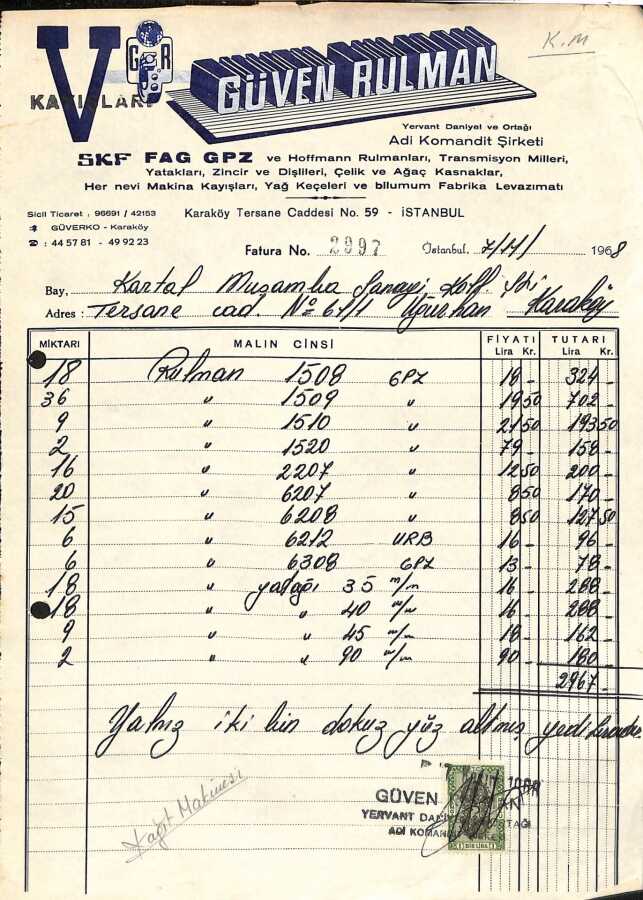 K.M
V G R
KAYIŞLARI
GÜVEN RULMAN
Yervant Daniyel ve Ortağı
Adi Komandit Şirketi
SKF FAG GPZ ve Hoffmann Rulmanları, Transmisyon Milleri,
Yatakları, Zincir ve Dişlileri, Çelik ve Ağaç Kasnaklar,
Her nevi Makina Kayışları, Yağ Keçeleri ve bilumum Fabrika Levazımatı
Sicil Ticaret : 96691 / 42153
Karaköy Tersane Caddesi No. 59 - İSTANBUL
GÜVERKO - Karaköy
: 44 57 81 - 49 92 23
Fatura No. 2997 İstanbul, 1968
Bay, Kartal Muşamba Sanayi Koll. Şti
Adres : Tersane cad. No 61/1 Uğurhan Karaköy
MİKTARI MALIN CİNSİ FİYATI Lira Kr. TUTARI Lira Kr.
18 Rulman 1508 GPZ 18 - 324 -
36 " 1509 " 19 50 702 -
9 " 1510 " 21 50 193 50
2 " 1520 " 79 - 158 -
16 " 2207 " 12 50 200 -
20 " 6207 " 8 50 170 -
15 " 6208 " 8 50 127 50
6 " 6212 URB 16 - 96 -
6 " 6308 GPZ 13 - 78 -
18 " yatağı 35 m/m 16 - 288 -
18 " " 40 m/m 16 - 288 -
9 " " 45 m/m 18 - 162 -
2 " " 90 m/m 90 - 180 -
2967 -
Yalnız iki bin dokuz yüz altmış yedi liradır.
Kağıt Makinesi
GÜVEN
YERVANT
ADİ
BİR LİRA